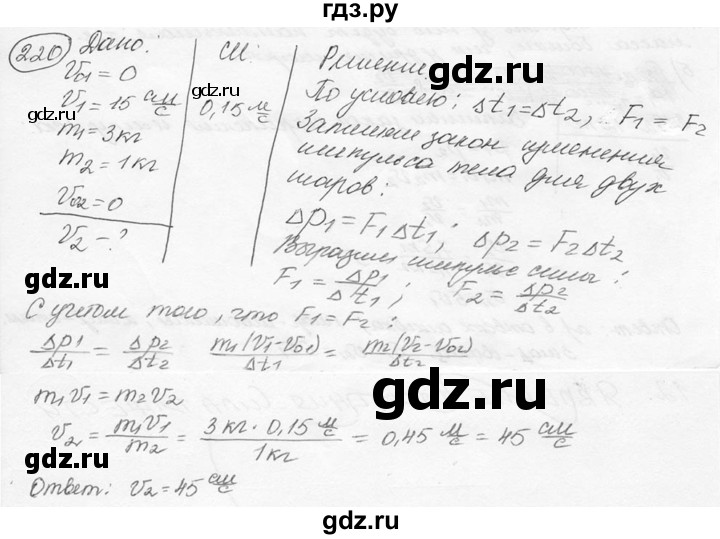 гдз.ру
220 Дано:
V₀₁ = 0
V₁ = 15 см/с
m₁ = 3 кг
m₂ = 1 кг
V₀₂ = 0
V₂ - ?
СИ:
0,15 м/с
Решение:
По условию: Δt₁ = Δt₂, F₁ = F₂
Запишем закон изменения
импульса тела для двух
шаров:
Δp₁ = F₁Δt₁; Δp₂ = F₂Δt₂
Выразим импульс силы:
F₁ = Δp₁/Δt₁; F₂ = Δp₂/Δt₂
С учетом того, что F₁ = F₂:
Δp₁/Δt₁ = Δp₂/Δt₂ m₁(V₁-V₀₁)/Δt₁ = m₂(V₂-V₀₂)/Δt₂
m₁V₁ = m₂V₂
V₂ = m₁V₁/m₂ = 3 кг · 0,15 м/с / 1 кг = 0,45 м/с = 45 см/с
Ответ: V₂ = 45 см/с
gdz.ru
gdz.ru
gdz.ru
gdz.ru
gdz.ru
gdz.ru
gdz.ru
gdz.ru